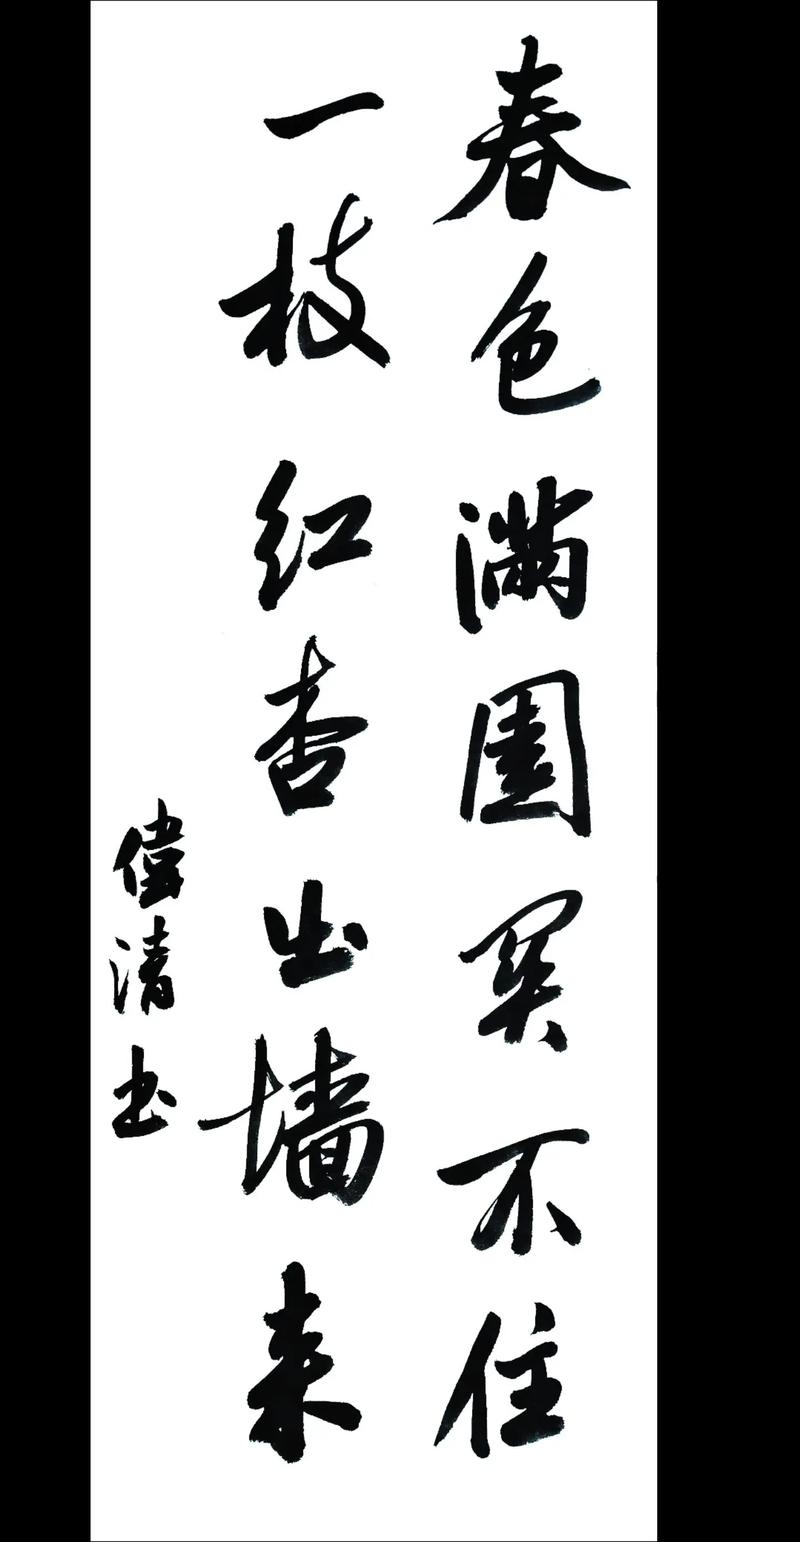 春色满园关不住
一枝红杏出墙来
偉清书